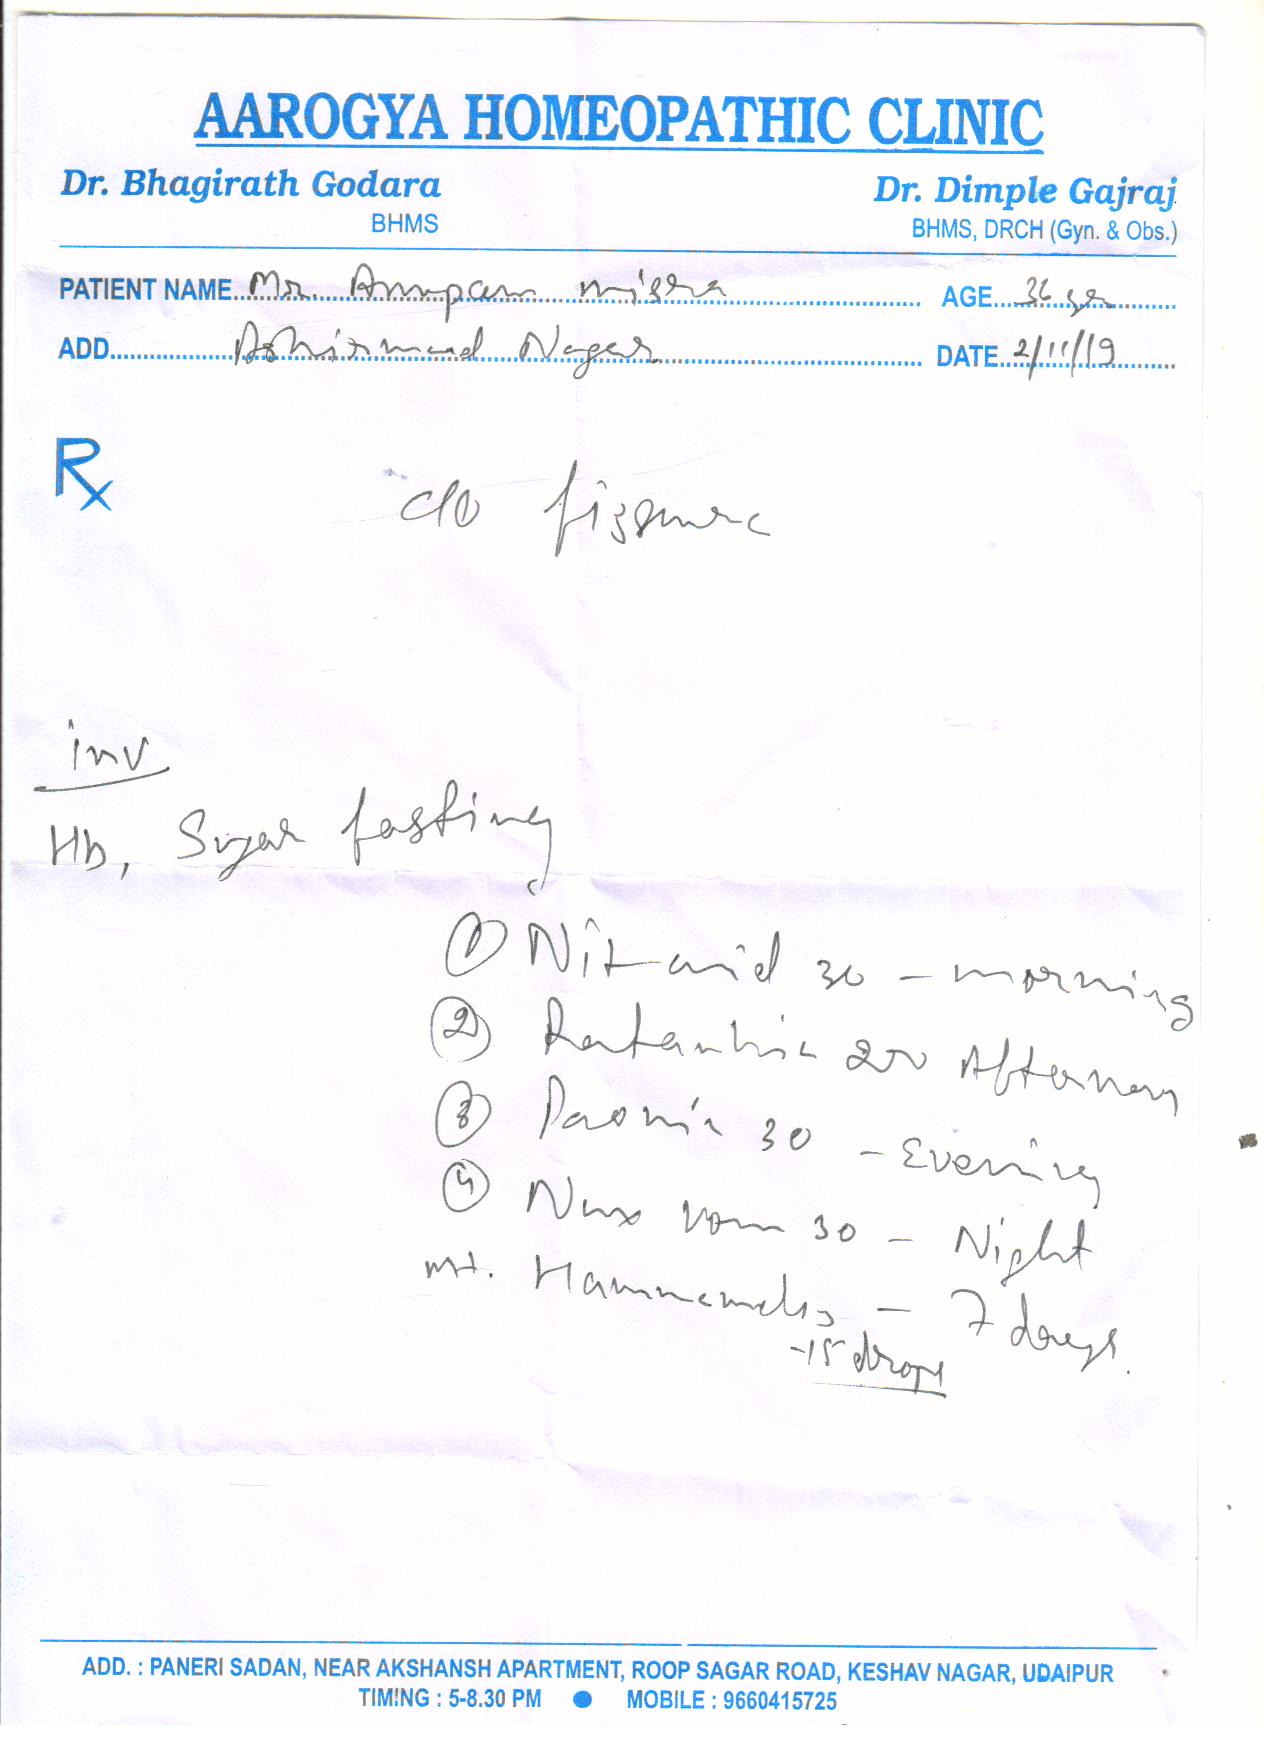 AAROGYA HOMEOPATHIC CLINIC
Dr. Bhagirath Godara Dr. Dimple Gajraj
BHMS BHMS, DRCH (Gyn. & Obs.)
PATIENT NAME Mr. Anupam Misra AGE 36 yr
ADD. Nagar DATE 2/11/19
Rx
c/o fissure
inv
Hb, Sugar fasting
① Nit acid 30 - morning
② Ratanhia 200 Afternoon
③ Paonia 30 - Evening
④ Nux vom 30 - Night
Hammemelis - 7 days.
-15 drops
ADD. : PANERI SADAN, NEAR AKSHANSH APARTMENT, ROOP SAGAR ROAD, KESHAV NAGAR, UDAIPUR
TIMING : 5-8.30 PM ● MOBILE : 9660415725